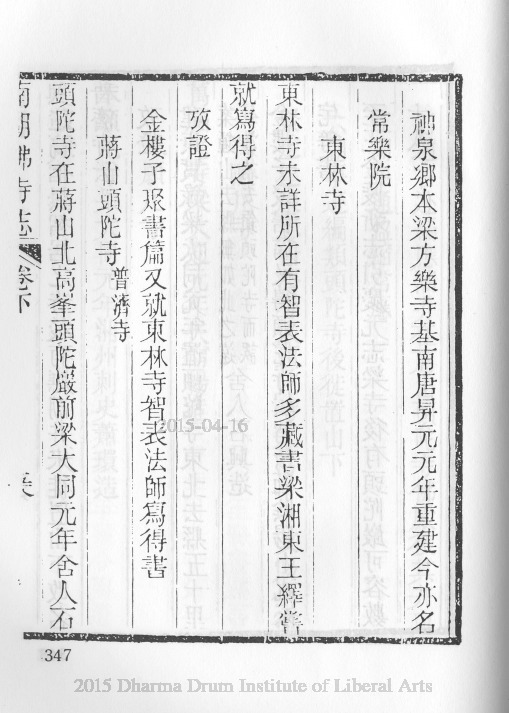 神泉鄉本梁方樂寺基南唐昇元元年重建今亦名
常樂院
東林寺
東林寺未詳所在有智表法師多藏書梁湘東王繹嘗
就寫得之
攷證
金樓子聚書篇又就東林寺智表法師寫得書
蔣山頭陀寺 普濟寺
頭陀寺在蔣山北高峯頭陀巖前梁大同元年舍人石
南朝佛寺志 卷下
347
2015-04-16
2015 Dharma Drum Institute of Liberal Arts